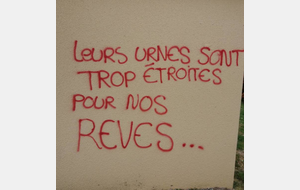 LEURS URNES SONT
TROP ÉTROITES
POUR NOS
REVES...